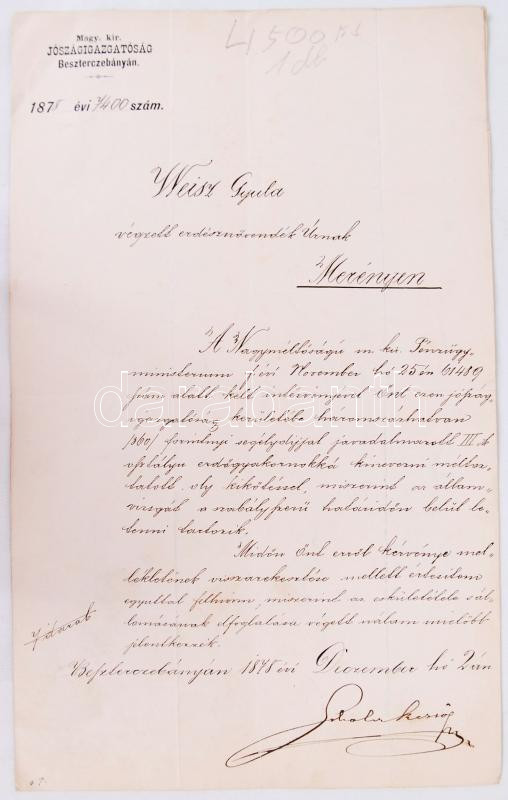 Magy. kir.
JÓSZÁGIGAZGATÓSÁG
Beszterczebányán.
1878 évi 7400 szám.
4,500
1 db
Weisz Gyula
végzett erdésznövendék Úrnak
Merényen
A Nagyméltóságú m. kir. Pénzügy-
ministerium f. évi November hó 25én 61489
szám alatt kelt intézvényért Önt ezen jószág-
igazgatóság kerületébe háromszázhatvan
/360/ forintnyi segélydíjjal javadalmazott III
osztályu erdőgyakornokká kinevezni méltoz-
tatott, oly kikötéssel, miszerint az állam-
vizsgát a szabályszerű határidőn belül le-
tenni tartozik.
Midőn Önt erről kérvénye mel-
lékleteinek visszarekesztése mellett értesitem
egyuttal felhivom, miszerint az eskületétele s ál-
lomásának elfoglalása végett nálam mielőbb
jelentkezzék.
7 darab
Beszterczebányán 1878 évi December hó 2án
darabanth